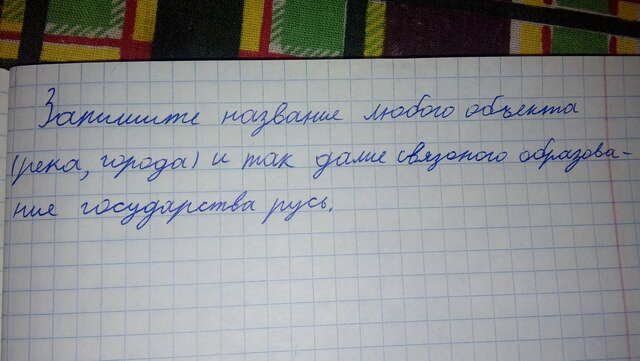 Запишите название любого объекта
(река, города) и так далие связоного образова-
ние государства русь.